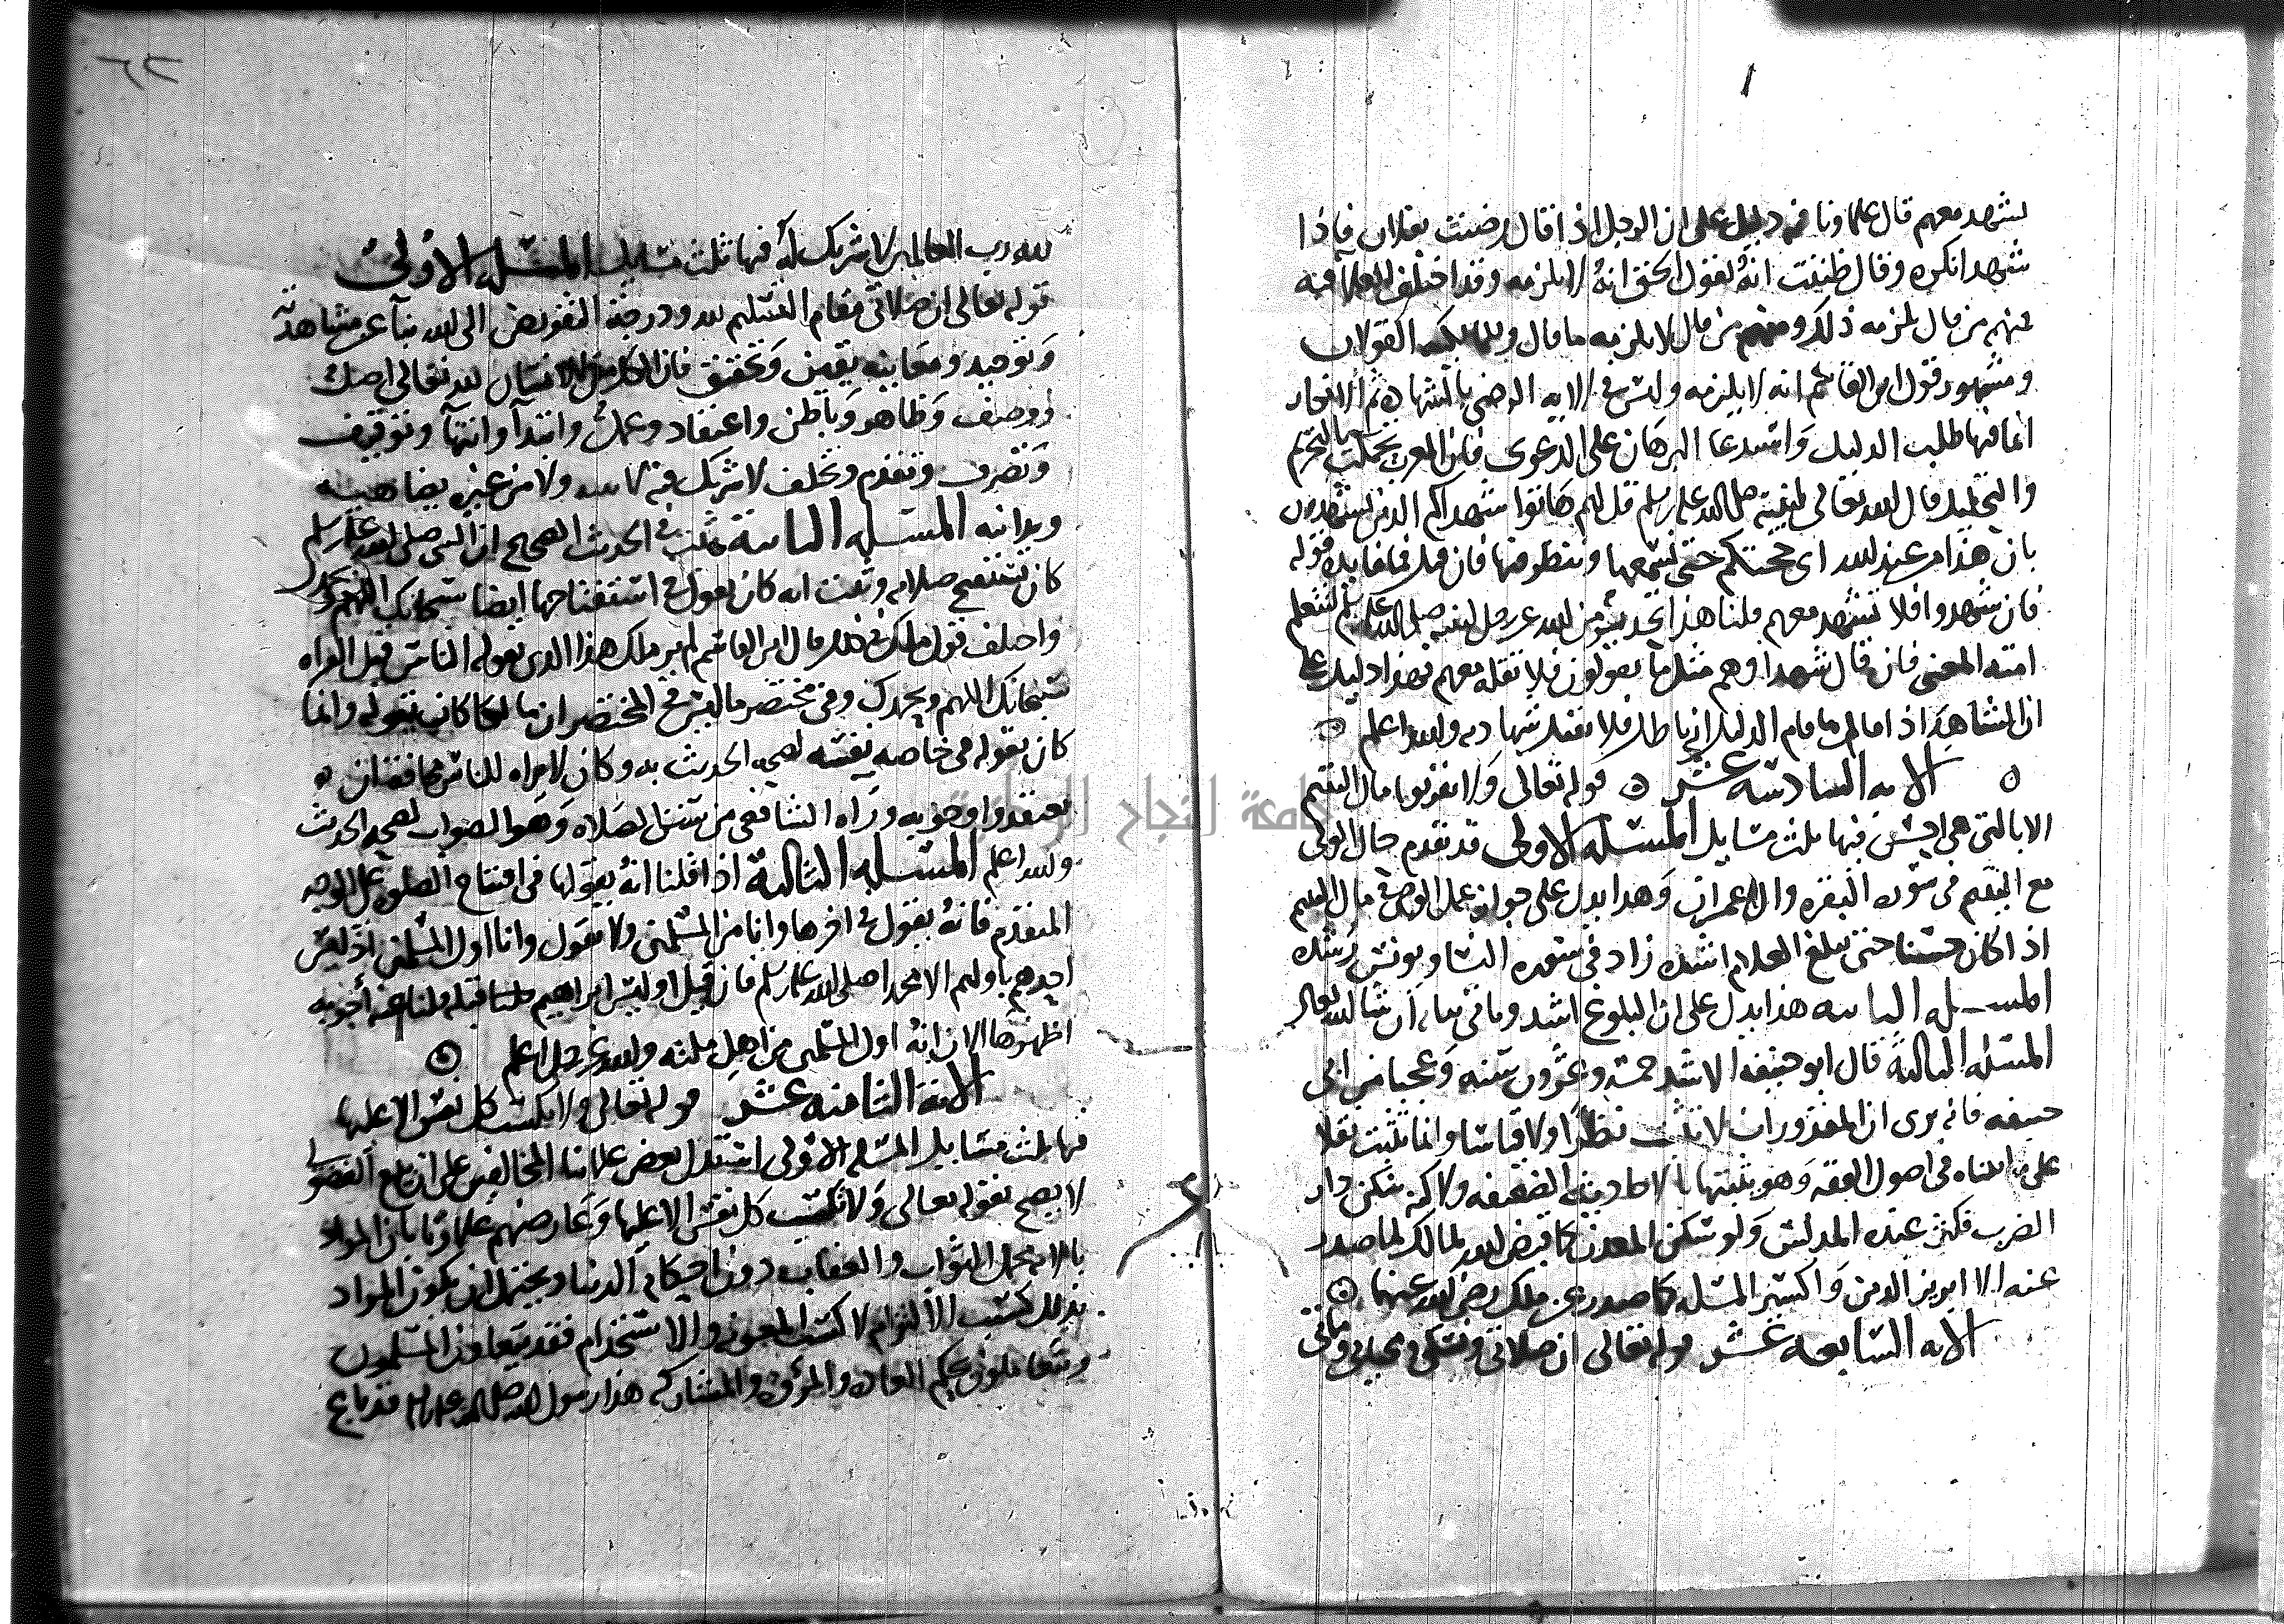 يشهد معهم قال علماونا فيه دليل على ان الرجل اذا قال رضيت بفلان فاذا
شهد انكره وقال ظننت انه يقول الحق انه لا يلزمه وقد اختلف العلما فيه
فمنهم من قال يلزمه ذلك ومنهم من قال لا يلزمه ما قال القولان
ومشهور قول ابن القاسم انه لا يلزمه وليس في الايه الرضى بالشهادة
انما فيها طلب الدليل واستدعا البرهان على الدعوى فان العرب بالتحريم
والتحليل قال الله تعالى لنبيه صلى الله عليه وسلم قل لهم هاتوا شهداكم الذين يشهدون
بان هذا من عند الله اي حجتكم حتى نسمعها وننظر فيها فان قيل فما فايدة قوله
فان شهدوا فلا تشهد معهم قلنا هذا من الله عز وجل لنبيه صلى الله عليه وسلم لتعلم
امته المعنى فان قال شهداوهم مثل ما يقولون فلا تقله معهم فهذا دليل على
ان الشاهد اذا قال ما قام الدليل انه باطل فلا تقبل شهادته والله اعلم
الايه السادسه عشر قوله تعالى ولا تقربوا مال اليتيم
الا بالتي هي احسن فيها ثلث مسايل المسئله الاولى قد تقدم حال الولي
مع اليتيم في سورة البقره وال عمران وهذا يدل على جواز عمل الوصي في مال اليتيم
اذا كان حسنا حتى يبلغ الغلام اشده زاد في سورة النسا ويونس رشده
المسئله الثانيه هذا يدل على ان البلوغ اشد وياتي بيانه ان شا الله تعالى
المسئله الثالثه قال ابو حنيفه الاشد خمسة وعشرون سنه وعجبا من ابي
حنيفه فانه يرى ان المقدورات لا تثبت نظرا ولا قياسا وانما تثبت نقلا
على ما بيناه في اصول الفقه وهو يثبتها بالاحاديث الضعيفه ولاكنه سكن دار
الضرب فكثر عنده المدلس ولو سكن المعدن كما قيض الله لمالك لما صدر
عنه الا ابريز الدين واكسير المسله كما صدر عن ملك رضي الله عنهما
الايه السابعه عشر قوله تعالى ان صلاتي ونسكي ومحياي ومماتي
لله رب العالمين لا شريك له فيها ثلث مسايل المسئله الاولى
قوله تعالى ان صلاتي مقام التسليم لله ودرجة التفويض الى الله بنا عن مشاهدته
وتوحيد ومعاينه يقين وتحقيق فان الكل من الانسان لله تعالى اصل
ووصف وظاهر وباطن واعتقاد وعمل وابتدآ وانتهآ وتوقيف
وتصرف وتقدم وتخلف لا شريك فيه لاحد ولا من غيره يضاهيه
ويدانيه المسئله الثانية ثبت في الحديث الصحيح ان النبي صلى الله عليه وسلم
كان يستفتح صلاته وثبت انه كان يقول في استفتاحها ايضا سبحانك اللهم وبحمدك
واختلف قول ملك في ذلك قال ابن القاسم لم ير ملك هذا الذي يقوله الناس قبل القراه
سبحانك اللهم وبحمدك وفي مختصر ما ليس في المختصر ان مالكا كان يقوله وانما
كان يقوله في خاصه نفسه لصحه الحديث به وكان لا يراه للناس مخافه ان
يعتقدوا وجوبه وراه الشافعي من سنن الصلاه وهو الصواب لصحه الحديث
والله اعلم المسئله الثالثة اذا قلنا انه يقولها في افتتاح الصلوة على الوجه
المتقدم فانه يقول في اخرها وانا من المسلمين ولا يقول وانا اول المسلمين اذ ليس
احدهم باولهم الا محمدا صلى الله عليه وسلم فان قيل اوليس ابراهيم قبله قلنا عنه اجوبه
اظهرها الان انه اول المسلمين من اهل ملته والله عز وجل اعلم
الايه الثامنه عشر قوله تعالى ولا تكسب كل نفس الا عليها
فيها ثلث مسايل المسئله الاولى استدل بعض علما المخالفين على ان بيع الفضولي
لا يصح بقوله تعالى ولا تكسب كل نفس الا عليها وعارضهم علماونا بان المراد
بالايه تحمل الثواب والعقاب دون احكام الدنيا ويحتمل ان يكون المراد
بذلك كسب الالتزام لا كسب المعونه والاستخدام فقد يتعاون المسلمون
ويتعاملون بحكم العاده والمروه والمشاركه هذا رسول الله صلى الله عليه وسلم قد باع